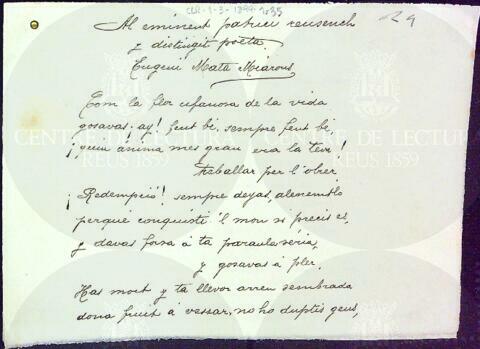 CLR-1-3-1899
29
Al eminent patrici reusench
y distingit poeta.
Eugeni Mata Miarons
Com la flor ufanosa de la vida
gosavas ¡ay! fent bé, sempre fent bé,
¡quin ánima mes gran era la teva!
treballar per l'obrer.
¡Redempció! sempre deyas, alenemtlo
perque conquisti 'l mon si precis es,
y davas forsa á ta paraula séria,
y gosavas á pler.
Has mort y ta llevor arreu sembrada
dona fruit á vessar, no ho duptis gens,
CENTRE DE LECTURA
REUS 1859
REUS 1859